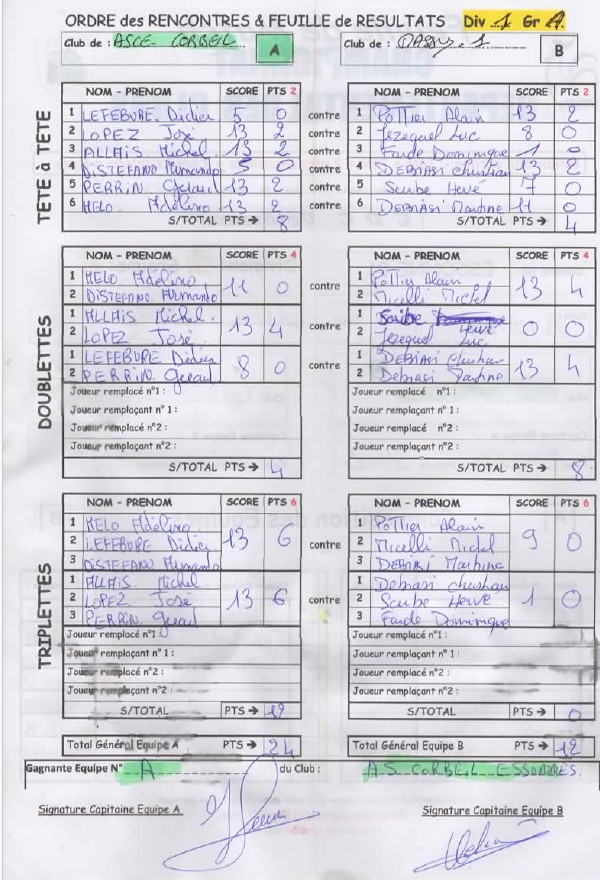 ORDRE des RENCONTRES & FEUILLE de RESULTATS Div 1 Gr A.
Club de : ASCE CORBEIL A Club de : MASSY 1 B
NOM - PRENOM SCORE PTS 2 NOM - PRENOM SCORE PTS 2
TÊTE à TÊTE
1 LEFEBURE Didier 5 0 contre 1 Pottier Alain 13 2
2 LOPEZ José 13 2 contre 2 Jezequel Luc 8 0
3 ALLAIS Michel 13 2 contre 3 Faude Dominique 1 0
4 DISTEFANO Armando 5 0 contre 4 DEBIASI Christian 13 2
5 PERRIN Gerard 13 2 contre 5 Scribe Hervé 7 0
6 MELO Adelino 13 2 contre 6 DEBIASI Martine 11 0
S/TOTAL PTS → 8 S/TOTAL PTS → 4
NOM - PRENOM SCORE PTS 4 NOM - PRENOM SCORE PTS 4
DOUBLETTES
1 MELO Adélino 11 0 contre 1 Pottier Alain 13 4
2 DISTEFANO Armando 2 Micelli Michel
1 ALLAIS Michel. 13 4 contre 1 Scribe Hervé 0 0
2 LOPEZ José. 2 Jezequel Luc
1 LEFEBURE Didier 8 0 contre 1 DEBIASI Christian 13 4
2 PERRIN Gerard 2 Debiasi Martine
Joueur remplacé n°1 : Joueur remplacé n°1 :
Joueur remplaçant n°1 : Joueur remplaçant n°1 :
Joueur remplacé n°2 : Joueur remplacé n°2 :
Joueur remplaçant n°2 : Joueur remplaçant n°2 :
S/TOTAL PTS → 4 S/TOTAL PTS → 8
NOM - PRENOM SCORE PTS 6 NOM - PRENOM SCORE PTS 6
TRIPLETTES
1 MELO Adélino 13 6 contre 1 Pottier Alain 9 0
2 LEFEBURE Didier 2 Micelli Michel
3 DISTEFANO Armando 3 DEBIASI Martine
1 ALLAIS Michel 13 6 contre 1 Debiasi Christian 1 0
2 LOPEZ José 2 Scribe Hervé
3 PERRIN Gerard 3 Faude Dominique
Joueur remplacé n°1 : Joueur remplacé n°1 :
Joueur remplaçant n°1 : Joueur remplaçant n°1 :
Joueur remplacé n°2 : Joueur remplacé n°2 :
Joueur remplaçant n°2 : Joueur remplaçant n°2 :
S/TOTAL PTS → 12 S/TOTAL PTS → 0
Total Général Equipe A PTS → 24 Total Général Equipe B PTS → 12
Gagnante Equipe N° A du Club : A.S. CORBEIL ESSONNES.
Signature Capitaine Equipe A Signature Capitaine Equipe B